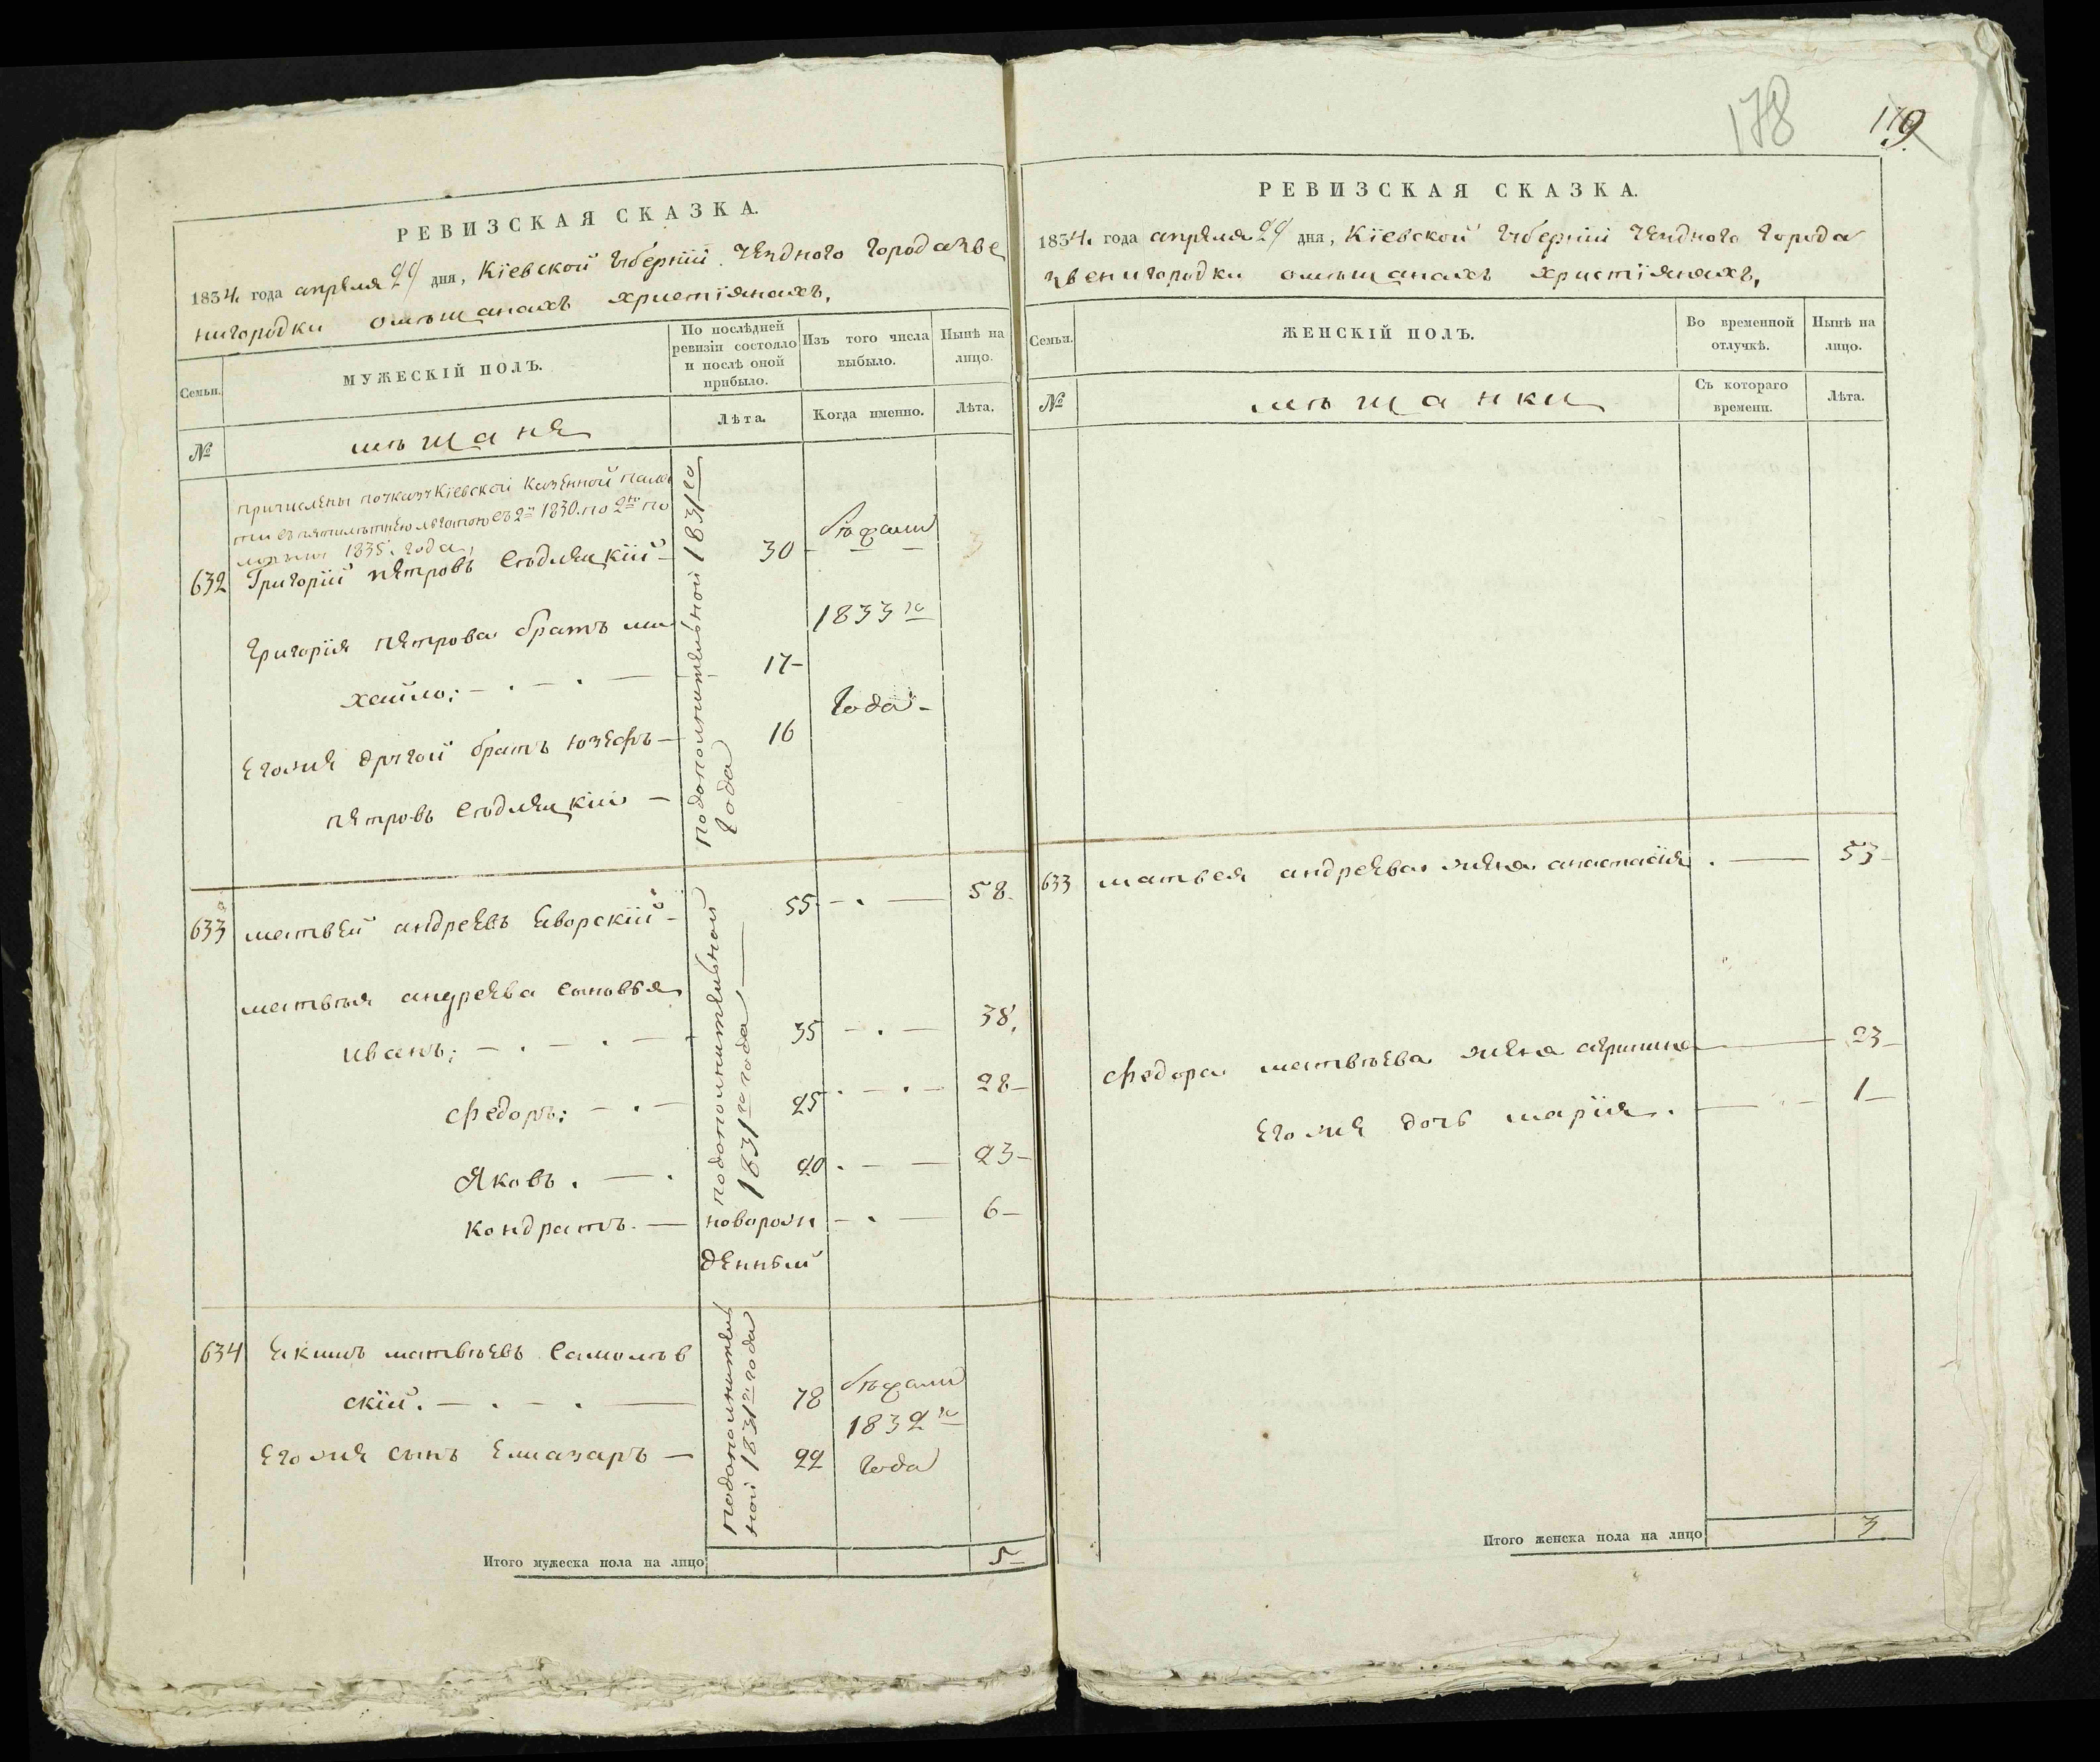 178
119
РЕВИЗСКАЯ СКАЗКА.
1834 года апреля 29 дня, Кіевской губерніи уездного города Зве
нигородки омѣщанахъ христіянахъ,
Семьи.
МУЖЕСКІЙ ПОЛЪ.
По послѣдней ревизіи состояло и послѣ оной прибыло.
Изъ того числа выбыло.
Нынѣ на лицо.
№
мѣщане
Лѣта.
Когда именно.
Лѣта.
причислены поуказу Кіевской Казенной пала
ты съ пятилѣтнею льготою съ 2й 1830. по 2ю по
ловину 1835. года,
632 Григорій петровъ Седлецкій - 30 - бѣжали
Григорія петрова братъ ми
хайло; - . - . - 17 - 1833го
Его же другой братъ юзефъ - 16 года -
петровъ Седлецкій -
подополнительной 1831го
года
633 матвей андреевъ Яворскій - 55 - . - 58.
матвѣя андреева сыновья
иванъ; - . - . - 35 - . - 38.
Федоръ; - . - 25 . - . - 28 -
Яковъ . - . 20 . - - 23 -
Кондратъ. - новорож - . - 6 -
денный
подополнительной
1831го года
634 Якимъ матвѣевъ Самолѣв
скій. - . - . - 78 бѣжали
1832го
Его же сынъ Елиазаръ - 22 года
подополнитель
ной 1831го года
Итого мужеска пола на лицо 5 -
РЕВИЗСКАЯ СКАЗКА.
1834 года апреля 29 дня, Кіевской губерніи уездного города
звенигородки омѣщанахъ христіянахъ,
Семьи.
ЖЕНСКІЙ ПОЛЪ.
Во временной отлучкѣ.
Нынѣ на лицо.
№
мѣщанки
Съ котораго времени.
Лѣта.
633 матвея андреева жена анастасія . - 53 -
Федора матвѣева жена агрипина - 23 -
Его же дочь марія . - 1 -
Итого женска пола на лицо 3